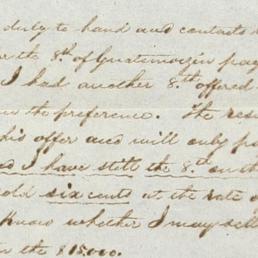 duly to hand and contents
the 8.th of Guatimozin pay
I had another 8.th offered
the preference. The res
his offer and will only pa
I have still the 8.th on th
old six cents at the rate of
Know whether I may sell
the $15,000.